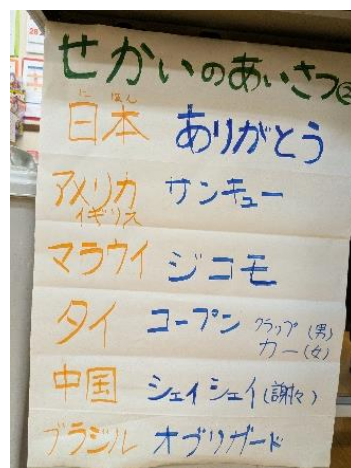 せかいのあいさつ②
にほん
日本 ありがとう
アメリカ サンキュー
イギリス
マラウイ ジコモ
タイ コープン クラップ(男)
カー(女)
中国 シェイシェイ(謝々)
ブラジル オブリガード